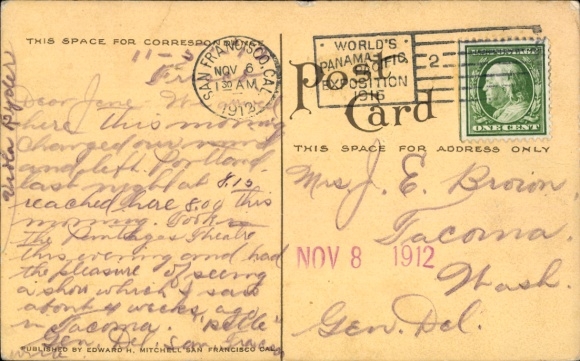 THIS SPACE FOR CORRESPONDENCE
11-5
SAN FRANCISCO, CAL.
NOV 6
1 30 AM
1912
WORLD'S
PANAMA-PACIFIC
EXPOSITION
1915
2
ONE CENT
Post
Card
THIS SPACE FOR ADDRESS ONLY
Dear Jane
here this morning
Changed our mind
and left Portland
last night at 8.15
reached here 8.04 this
morning. Took in
The Pantages Theatre
this evening and had
the pleasure of seeing
a show which I saw
about 4 weeks ago
in Tacoma. Belle
Gen. Del. San Fran
Viola Ryder
Mrs. J. E. Brown
Tacoma.
Wash.
Gen. Del.
NOV 8 1912
PUBLISHED BY EDWARD H. MITCHELL SAN FRANCISCO CAL.